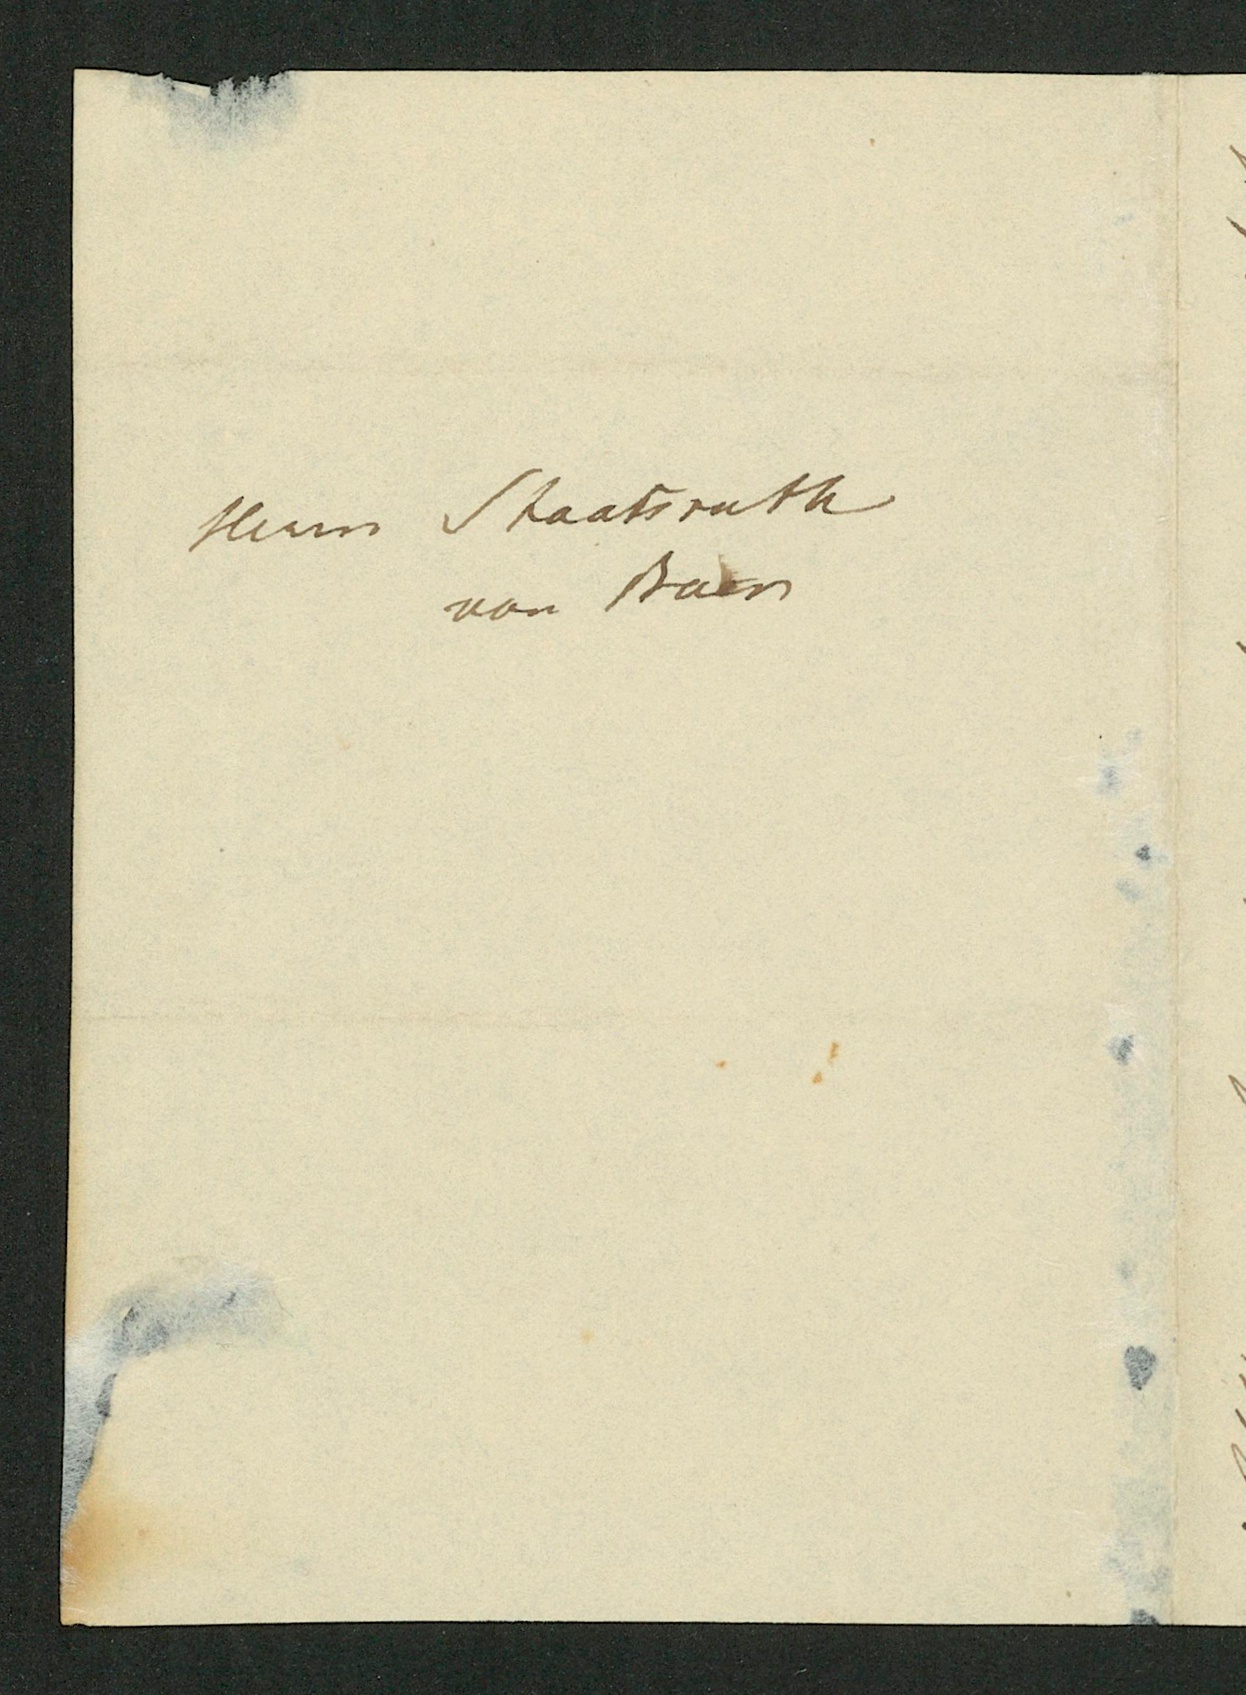 Herrn Staatsrath
von Baer